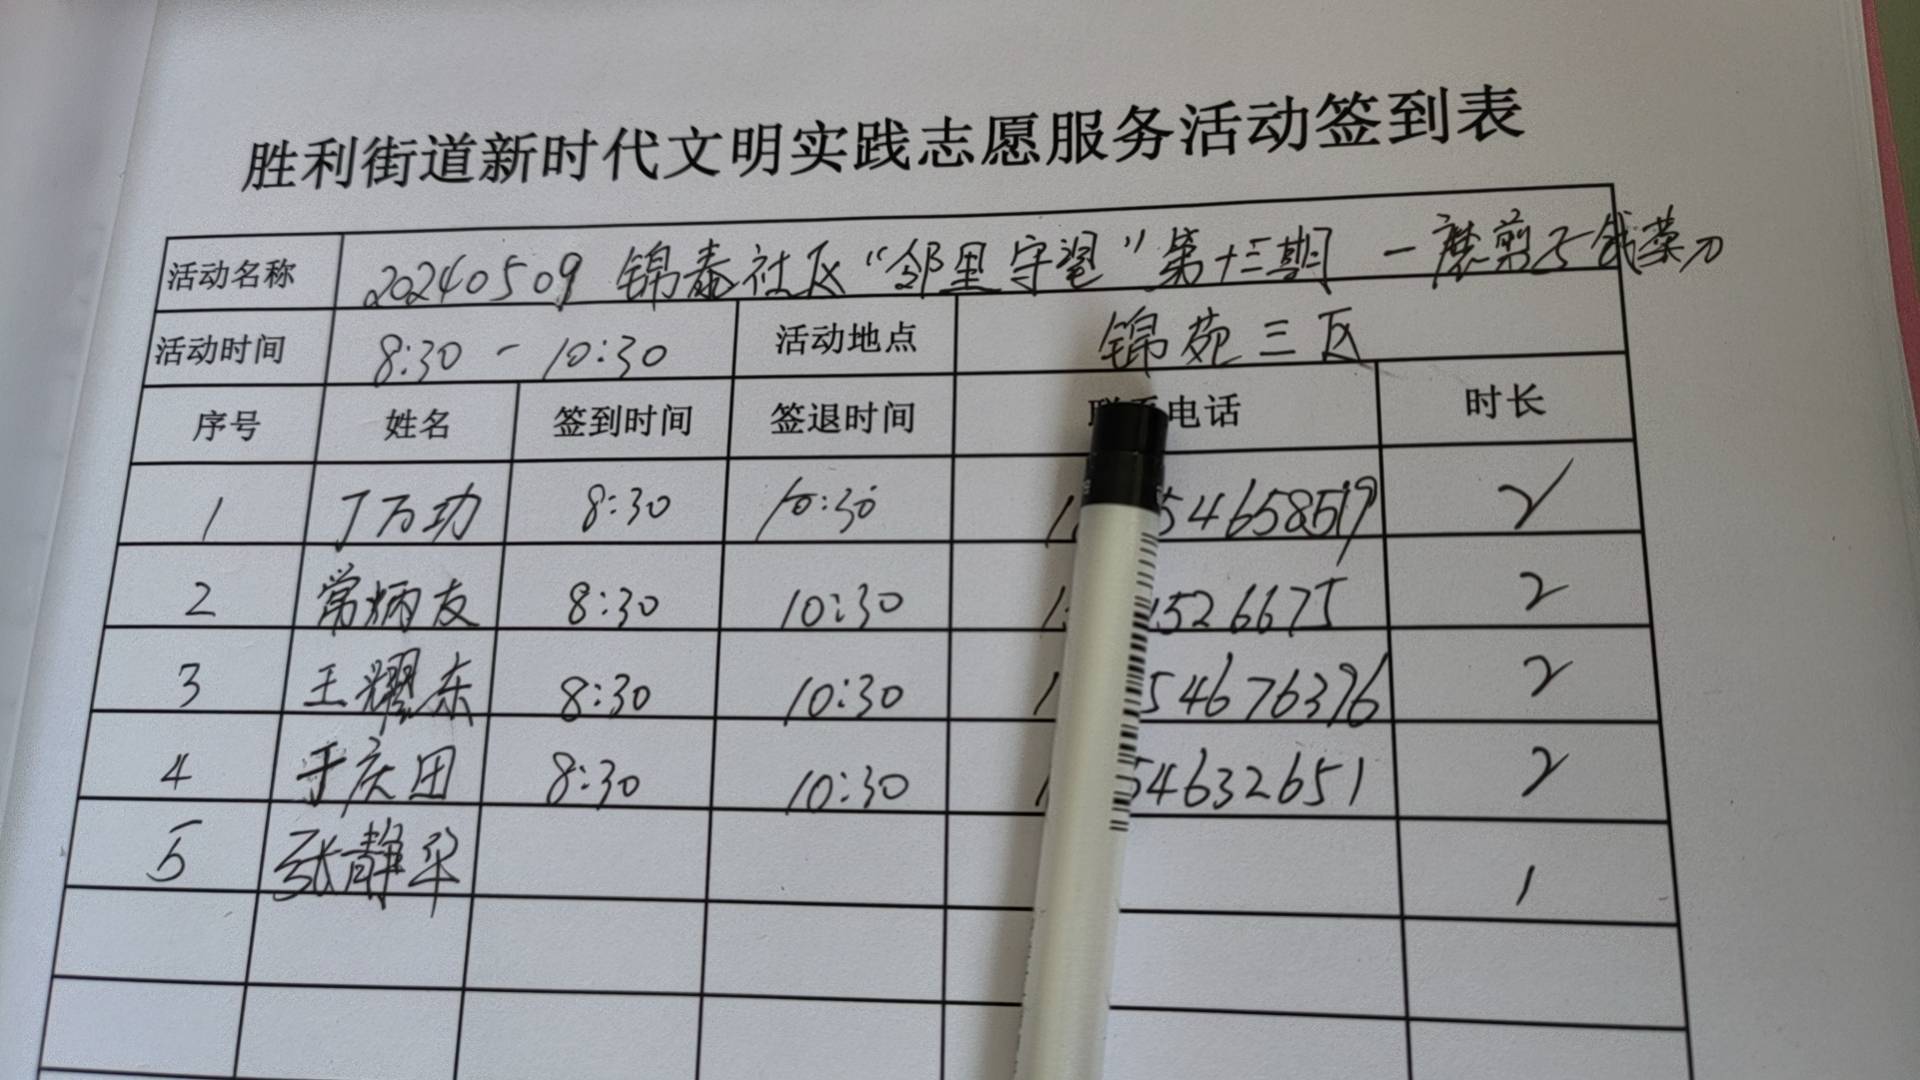 胜利街道新时代文明实践志愿服务活动签到表
活动名称 20240509 锦泰社区“邻里守望”第十三期 一磨剪子戗菜刀
活动时间 8:30 - 10:30 活动地点 锦苑三区
序号 姓名 签到时间 签退时间 电话 时长
1 丁万功 8:30 10:30 54658519 2
2 常炳友 8:30 10:30 1526675 2
3 王耀东 8:30 10:30 54676376 2
4 于庆团 8:30 10:30 54632651 2
5 张静华 1